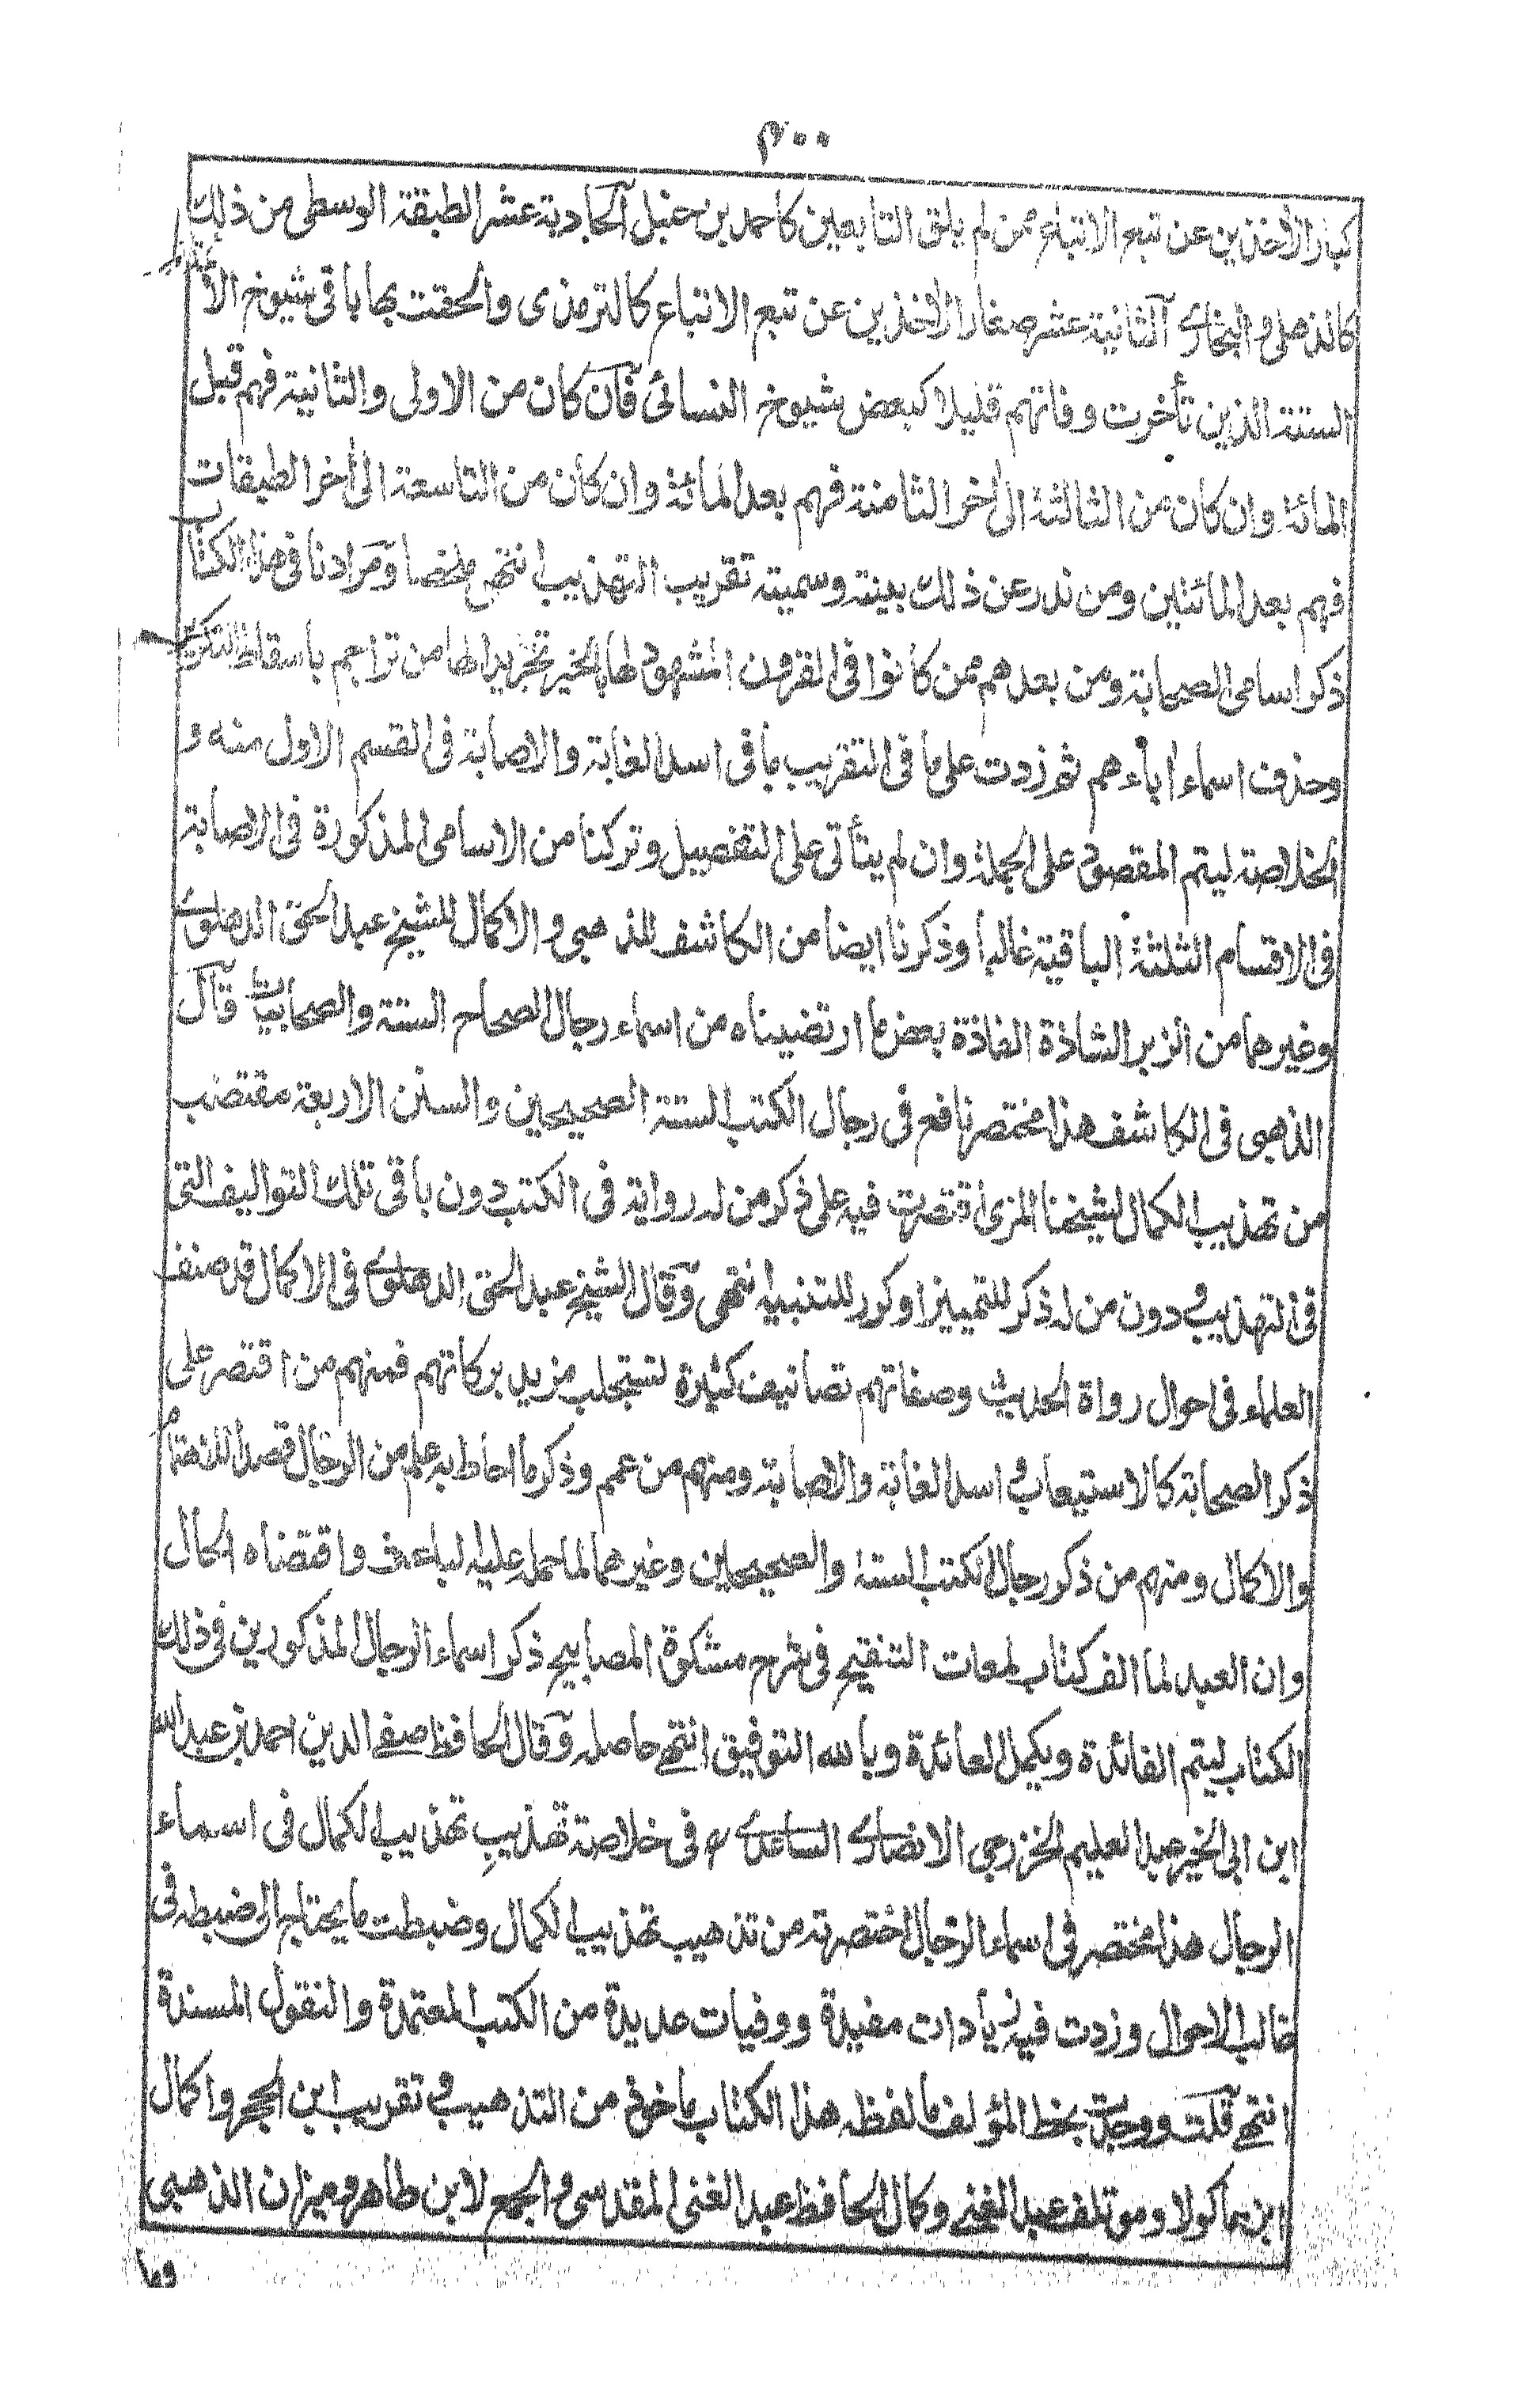 ٣٠٠
كبار الآخذين عن تبع الاتباع ممن لم يلق التابعين كاحمد بن حنبل آلحادية عشر الطبقة الوسطى من ذلك
كالذهلى و البخارى آلثانية عشر صغار الآخذين عن تبع الاتباع كالترمذى والحقت بها باقى شيوخ الائمة
الستة الذين تأخرت وفاتهم قليلا كبعض شيوخ النسائى فآن كان من الاولى والثانية فهم قبل
المائة وان كان من الثالثة الى أخر الثامنة فهم بعد المائة وان كان من التاسعة الى أخر الطبقات
فهم بعد المائتين ومن ندر عن ذلك بينته وسميته تقريب التهذيب انتهى ملخصا ومرادنا فى هذا الكتاب
ذكر اسامى الصحابة ومن بعدهم ممن كانوا فى القرون المشهود لها بالخير تجريدا لها من تراجم باسقاط التكرير
وحذف اسماء اباءهم ثم زدت على ما فى التقريب ما فى اسد الغابة والاصابة فى القسم الاول منه و
الخلاصة ليتم المقصود على الجملة وان لم يتأتى على التفصيل وتركنا من الاسامى المذكورة فى الاصابة
فى الاقسام الثلثة الباقية غالبا وذكرنا ايضا من الكاشف للذهبى و الاكمال للشيخ عبد الحق الدهلوى
وغيرهما من الزبر الشاذة الفاذة بعض ما ارتضيناه من اسماء رجال الصحاح الستة والصحابيات قآل
الذهبى فى الكاشف هذا مختصر نافع فى رجال الكتب الستة الصحيحين والسنن الاربعة مقتضب
من تهذيب الكمال لشيخنا المزى اقتصرت فيه على ذكر من له رواية فى الكتب دون باقى تلك التواليف التى
فى التهذيب ودون من له ذكر للتمييز او كرر للتنبيه انتهى وقآل الشيخ عبد الحق الدهلوى فى الاكمال قد صنف
العلماء فى احوال رواة الحديث وصفاتهم تصانيف كثيرة لتستجلب مزيد بركاتهم فمنهم من اقتصر على
ذكر الصحابة كالاستيعاب و اسد الغابة والاصابة ومنهم من عمم وذكر ما احاط به علم من الرجال قصدا للاهتمام
والاكمال ومنهم من ذكر رجال الكتب الستة والصحيحين وغيرهما لما حمله عليه لباعث واقتضاه الحال
وان العبد لما الف كتاب لمعات التنقيح فى شرح مشكوة المصابيح ذكر اسماء الرجال المذكورين فى ذلك
الكتاب ليتم الفائدة ويكمل العائدة وبالله التوفيق انتهى حاصله وقآل الحافظ صفى الدين احمد بن عبد الله
ابن ابى الخير عبد العليم الخزرجى الانصارى الساعدى فى خلاصة تهذيب تهذيب الكمال فى اسماء
الرجال هذا مختصر فى اسماء الرجال اختصرته من تذهيب تهذيب الكمال وضبطت ما يحتاج الى ضبطه فى
غالب الاحوال وزدت فيه زيادات مفيدة ووفيات عديدة من الكتب المعتمدة والنقول المسندة
انتهى قلت ووجدت بخط المؤلف ما لفظه هذا الكتاب ماخوذ من التذهيب و تقريب ابن الحجر واكمال
ابن ماكولا وموتلف عبد الغنى وكمال الحافظ عبد الغنى المقدسى و الجمع لابن طاهر وميزان الذهبى
وما